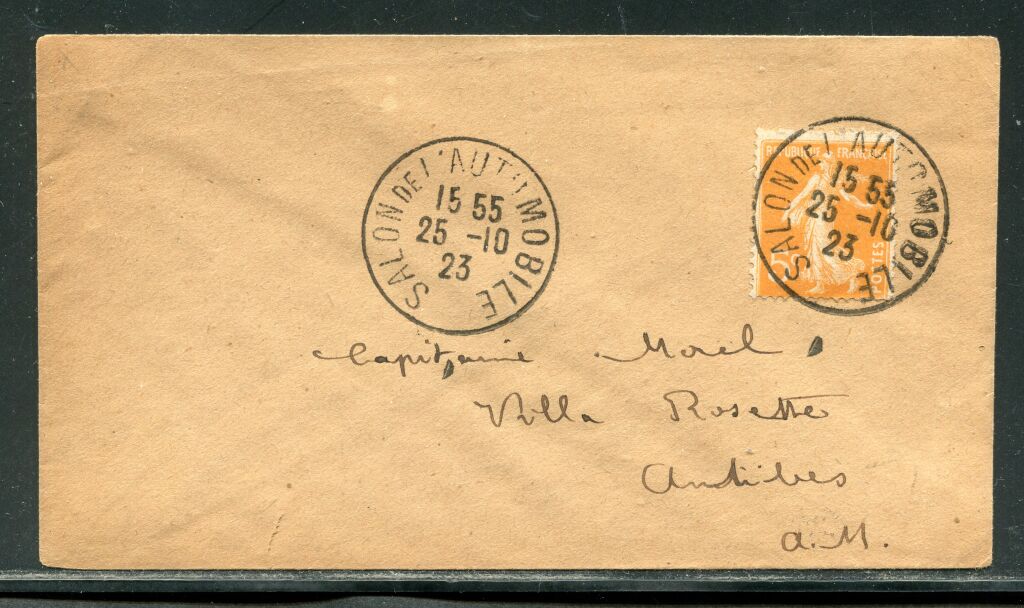 SALON DE L'AUTOMOBILE
15 55
25 -10
23
REPUBLIQUE FRANÇAISE
5
POSTES
SALON DE L'AUTOMOBILE
15 55
25 -10
23
Capitaine Morel
Villa Rosette
Antibes
A.M.